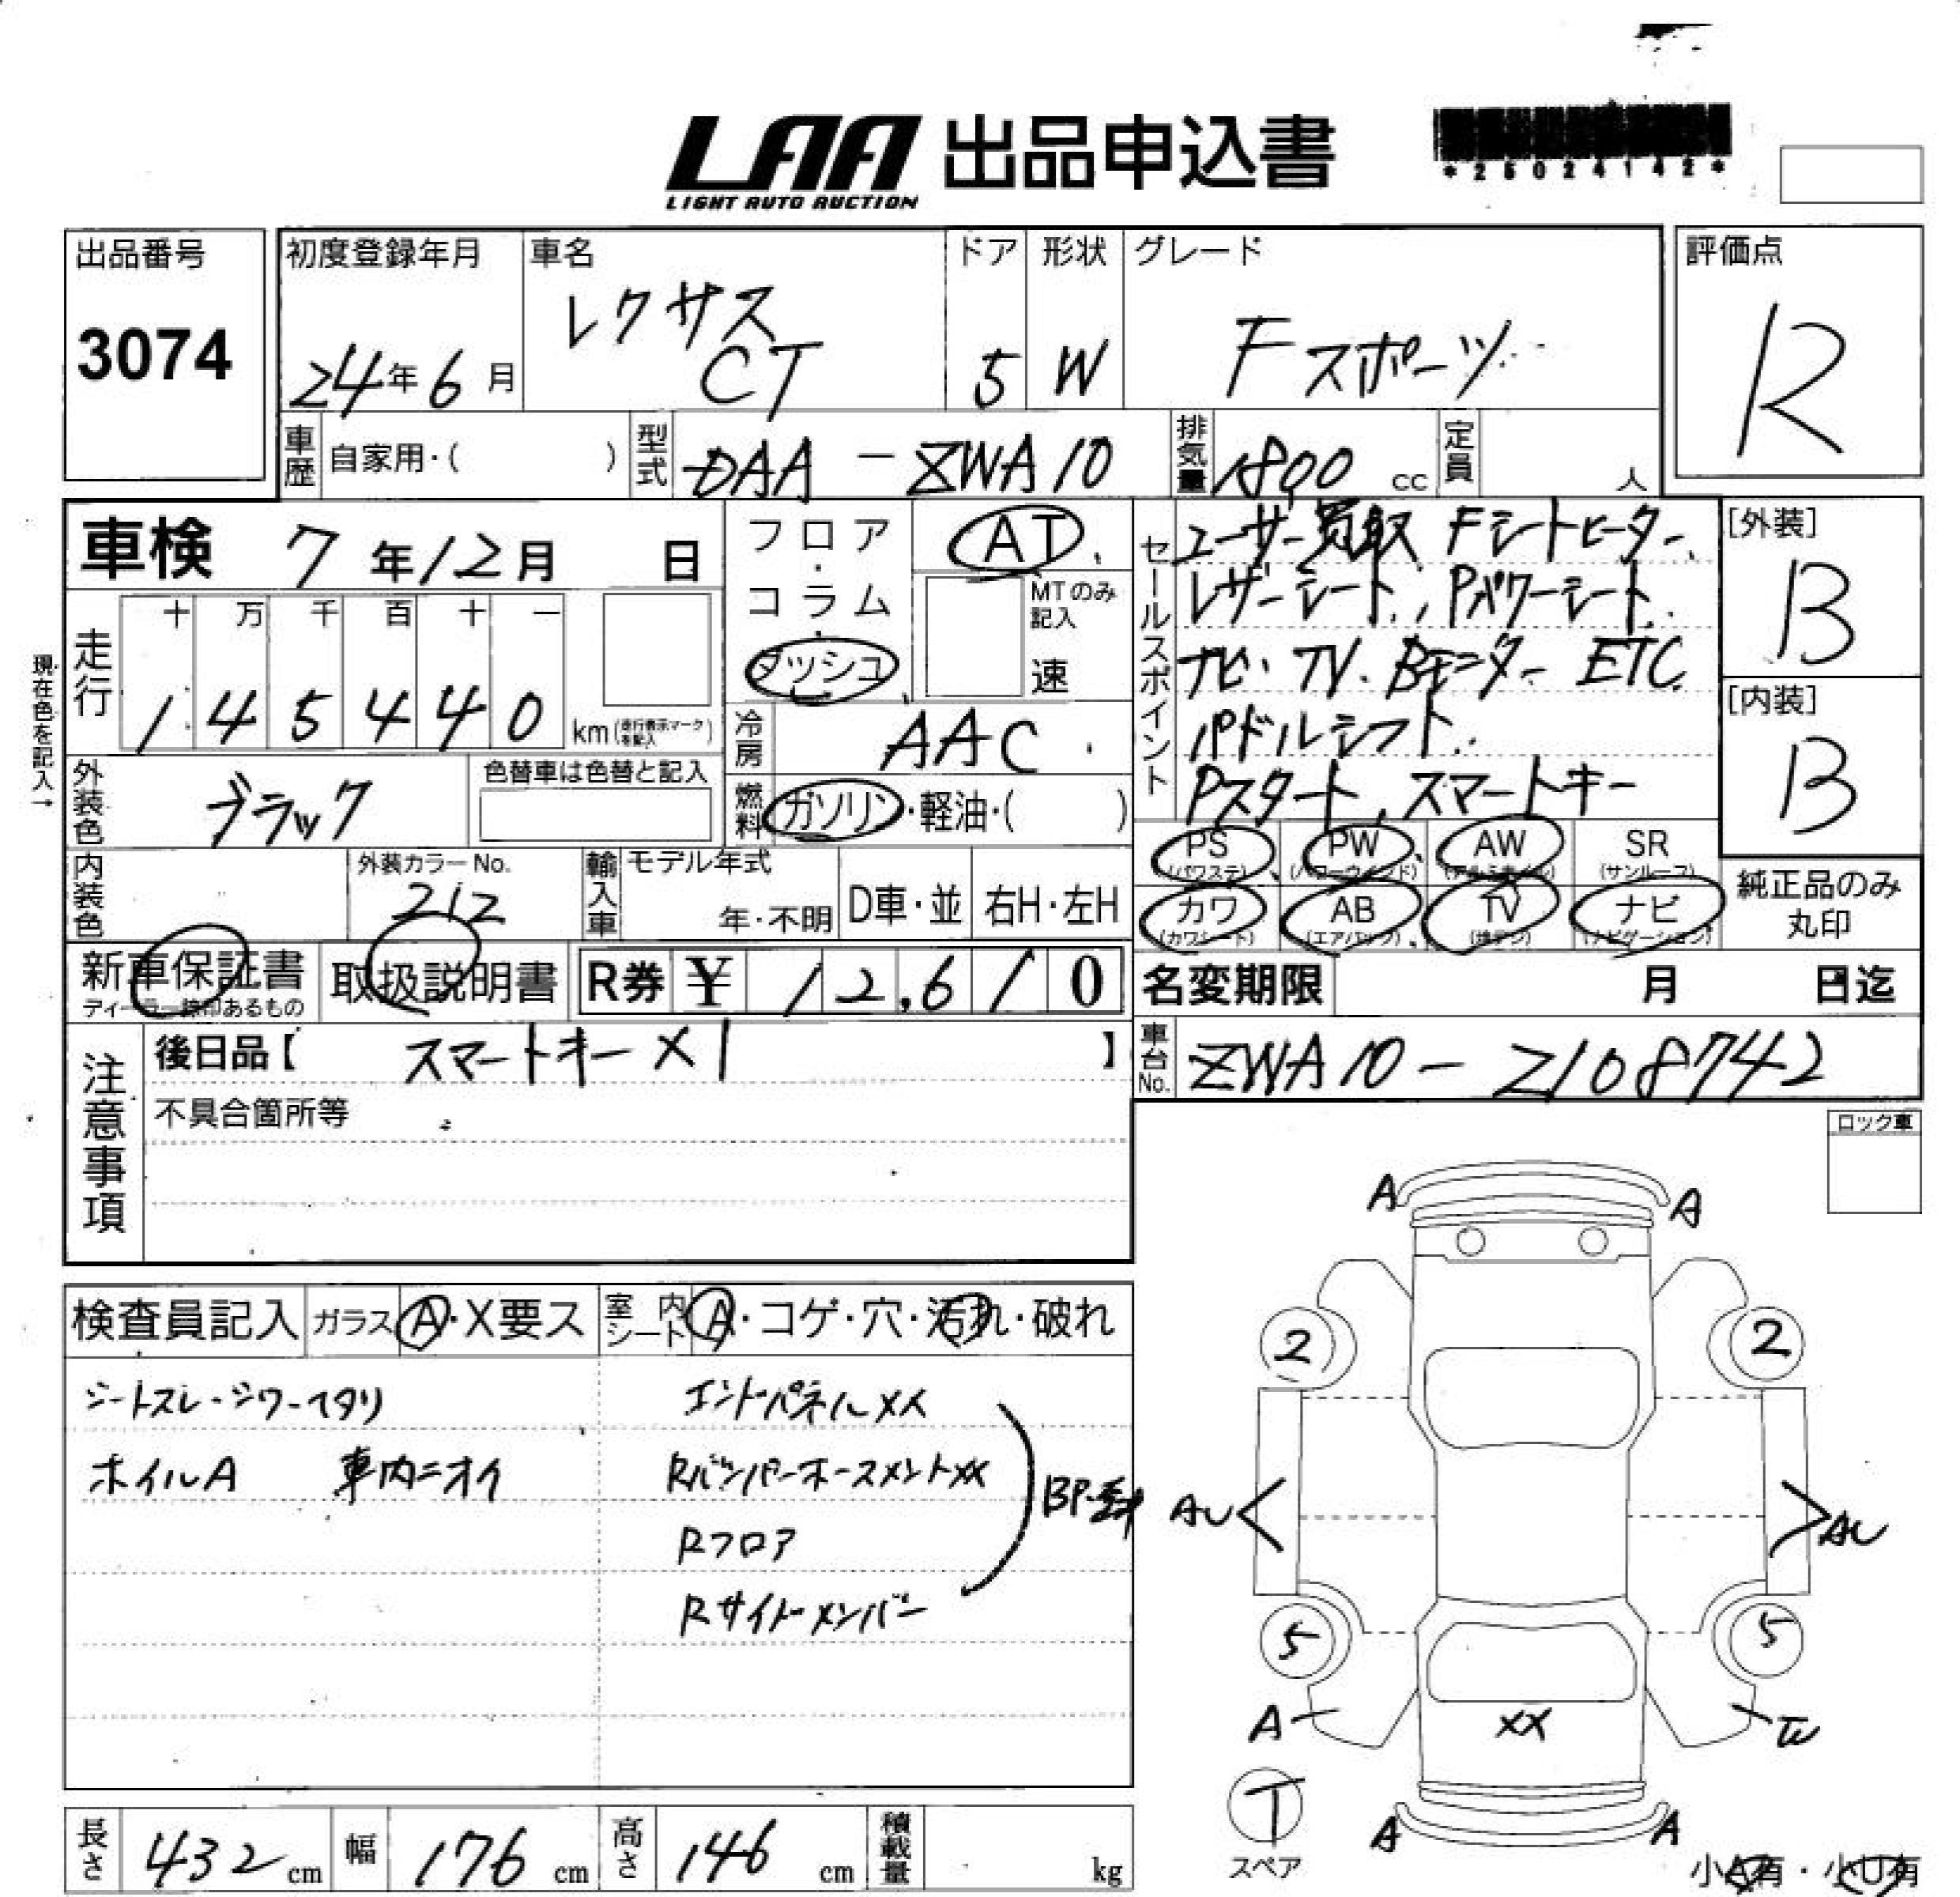 LAA 出品申込書
LIGHT AUTO AUCTION
*25024142*
出品番号
3074
初度登録年月
24年6月
車名
レクサス
CT
ドア
5
形状
W
グレード
Fスポーツ
評価点
R
車歴
自家用・( )
型式
DAA-ZWA10
排気量
1800 cc
定員
人
車検 7年12月 日
フロア
・
コラム
・
ダッシュ
AT
MTのみ記入
速
セールスポイント
ユーザー買取 Fシートヒーター、
レザーシート、Pパワーシート、
ナビ・TV・Bモニター ETC
パドルシフト
Pスタート、スマートキー
[外装]
B
[内装]
B
現在色を記入→
走行
十 万 千 百 十 一
1 4 5 4 4 0 km (走行表示マークを記入)
冷房
AAC
外装色
ブラック
色替車は色替と記入
燃料
ガソリン・軽油・( )
PS (パワステ)
PW (パワーウインド)
AW (アルミホイル)
SR (サンルーフ)
カワ (カワシート)
AB (エアバック)
TV (地デジ)
ナビ (ナビゲーション)
純正品のみ
丸印
内装色
外装カラーNo.
212
輸入車
モデル年式
年・不明
D車・並
右H・左H
新車保証書
ディーラー捺印あるもの
取扱説明書
R券 ¥ 12,610
名変期限 月 日迄
注意事項
後日品【 スマートキー×1 】
不具合箇所等
車台No.
ZWA10-2108742
ロック車
検査員記入
ガラス
A・X要ス
室内シート
A・コゲ・穴・汚れ・破れ
シートスレ・シワ・ヘタリ
ホイルA 車内ニオイ
エンドパネルXX
RバンパーホースメントXX
Rフロア
Rサイドメンバー
A A
2 2
AU AU
5 5
A
XX
T
スペア
A A
小A有・小U有
長さ
432 cm
幅
176 cm
高さ
146 cm
積載量
kg